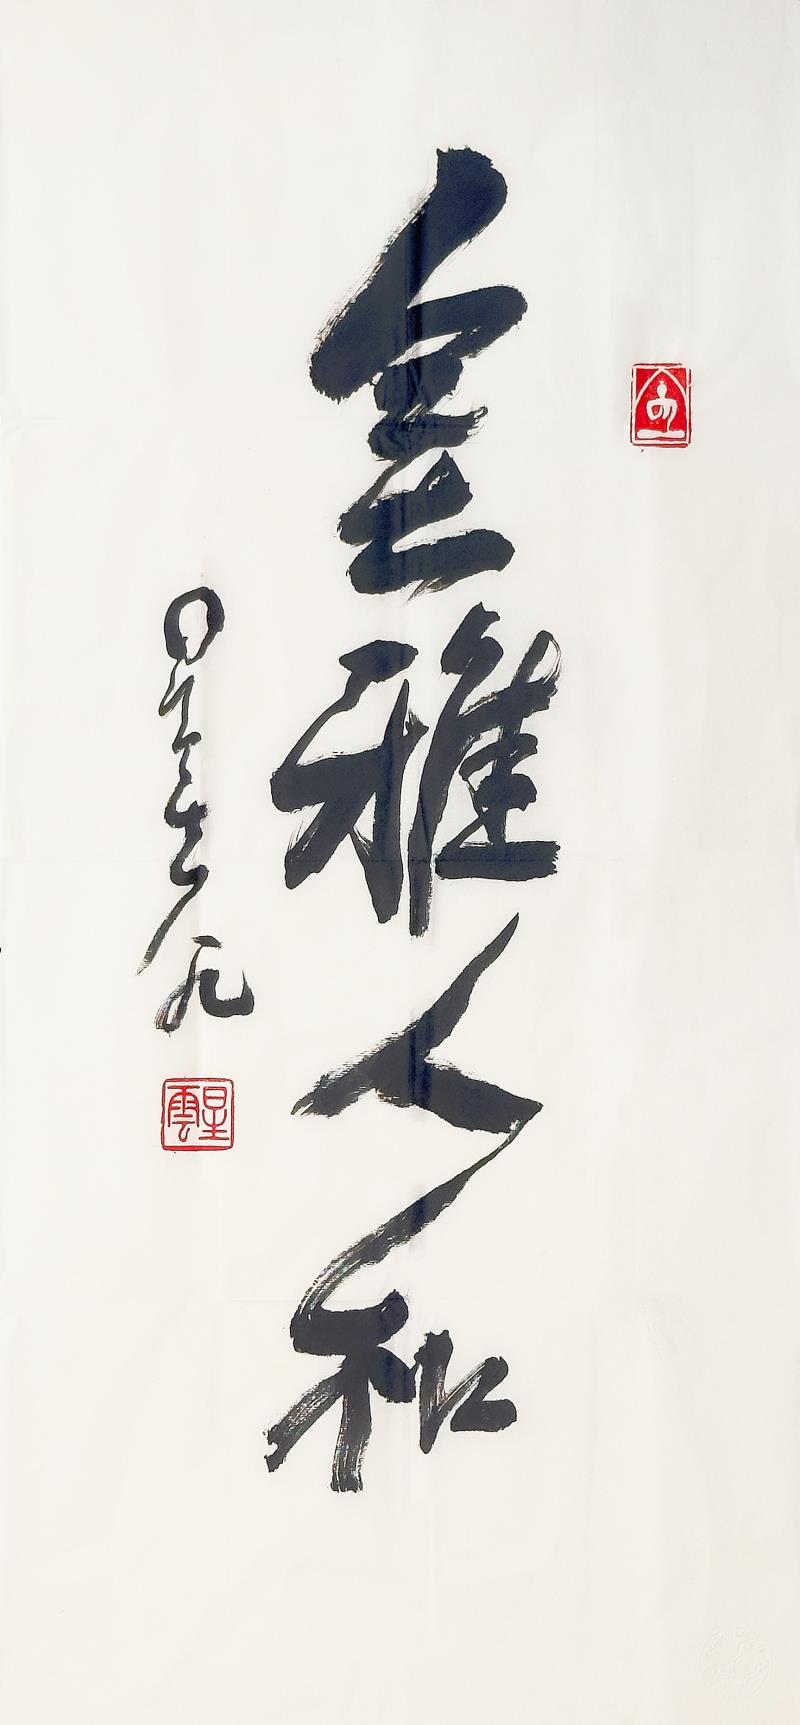 室雅人和
星雲
星雲